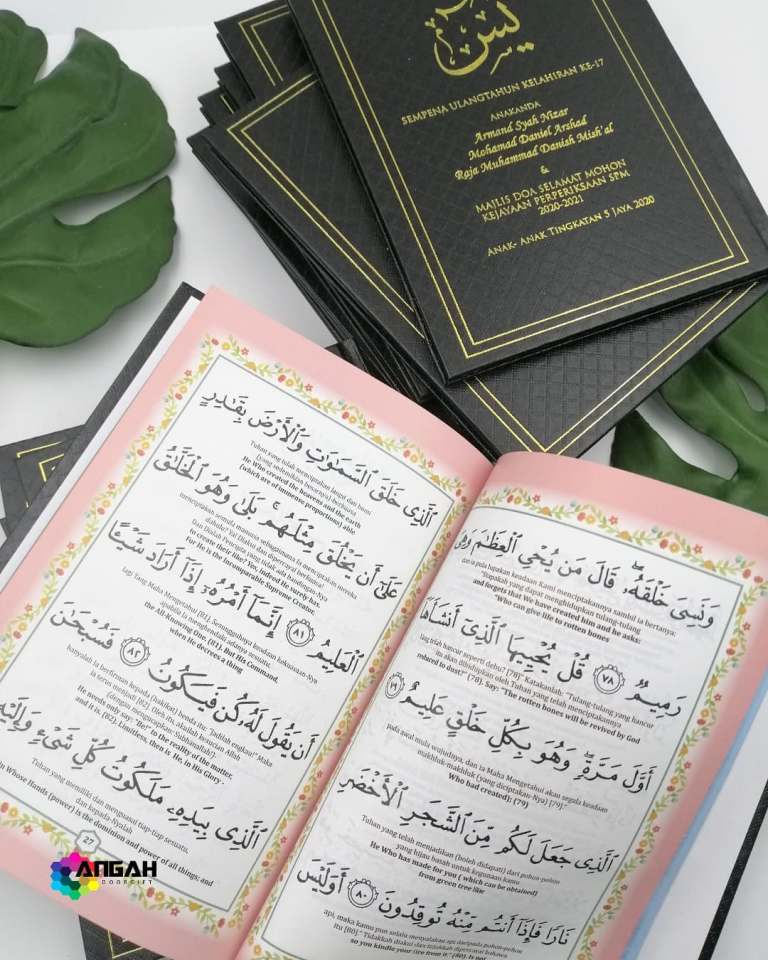 يس
SEMPENA ULANGTAHUN KELAHIRAN KE-17
ANAKANDA
Armand Syah Nizar
Mohamad Daniel Arshad
Raja Muhammad Danish Mish'al
&
MAJLIS DOA SELAMAT MOHON
KEJAYAAN PERPERIKSAAN SPM
2020-2021
ANAK- ANAK TINGKATAN 5 JAYA 2020
وَنَسِىَ خَلْقَهُۥ ۖ قَالَ مَن يُحْىِ ٱلْعِظَٰمَ وَهِىَ
pula lupakan keadaan Kami menciptakannya sambil ia bertanya:
"Siapakah yang dapat menghidupkan tulang-tulang
and forgets that We have created him and he asks:
"Who can give life to rotten bones
رَمِيمٌ ٧٨ قُلْ يُحْيِيهَا ٱلَّذِىٓ أَنشَأَهَآ
yang telah hancur seperti debu? [78]" Katakanlah: "Tulang-tulang yang hancur
itu akan dihidupkan oleh Tuhan yang telah menciptakannya
reduced to dust" (78). Say: "The rotten bones will be revived by God
أَوَّلَ مَرَّةٍ ۖ وَهُوَ بِكُلِّ خَلْقٍ عَلِيمٌ ٧٩
pada awal mula wujudnya, dan ia Maha Mengetahui akan segala keadaan
makhluk-makhluk (yang diciptakan-Nya) [79]"
Who had created); (79)
ٱلَّذِى جَعَلَ لَكُم مِّنَ ٱلشَّجَرِ ٱلْأَخْضَرِ
Tuhan yang telah menjadikan (boleh didapati) dari pohon-pohon
yang hijau basah untuk kegunaan kamu
He Who has made for you ( which can be obtained)
from green tree like
نَارًا فَإِذَآ أَنتُم مِّنْهُ تُوقِدُونَ ٨٠ أَوَلَيْسَ
api, maka kamu pun selalu menyalakan api daripada pohon-pohon
itu [80]." Tidakkah diakui dan tidakkah dipercayai bahawa
so you kindle your fire from it" (80). Is not
ٱلَّذِى خَلَقَ ٱلسَّمَٰوَٰتِ وَٱلْأَرْضَ بِقَٰدِرٍ
Tuhan yang telah menciptakan langit dan bumi
(yang sedemikian besarnya) berkuasa
He Who created the heavens and the earth
(which are of immense proportions) able
عَلَىٰٓ أَن يَخْلُقَ مِثْلَهُم ۚ بَلَىٰ وَهُوَ ٱلْخَلَّٰقُ
menciptakan semula manusia sebagaimana ia menciptakan mereka
dahulu? Ya! Diakui dan dipercayai berkuasa!
Dan Dialah Pencipta yang tidak ada bandingan-Nya
to create their like? Yes, indeed He surely has.
For He is the Incomparable Supreme Creator,
ٱلْعَلِيمُ ٨١ إِنَّمَآ أَمْرُهُۥٓ إِذَآ أَرَادَ شَيْـًٔا
lagi Yang Maha Mengetahui [81]. Sesungguhnya keadaan kekuasaan-Nya
apabila ia menghendaki adanya sesuatu.
the All-Knowing One. (81). But His Command,
when He decrees a thing
أَن يَقُولَ لَهُۥ كُن فَيَكُونُ ٨٢ فَسُبْحَٰنَ
hanyalah ia berfirman kepada (hakikat) benda itu: "Jadilah engkau!" Maka
ia terus menjadi [82]. Oleh itu, akuilah kesucian Allah
(dengan mengucapkan: Subhaanallah!)
He needs only say: "Be!" to the reality of the matter,
and it is. (82). Limitless, then is He, in His Glory :
ٱلَّذِى بِيَدِهِۦ مَلَكُوتُ كُلِّ شَىْءٍ وَإِلَيْهِ
Tuhan yang memiliki dan menguasai tiap-tiap sesuatu,
dan kepada-Nyalah
in Whose Hands (power) is the dominion and power of all things; and
27
ANGAH
DOORGIFT